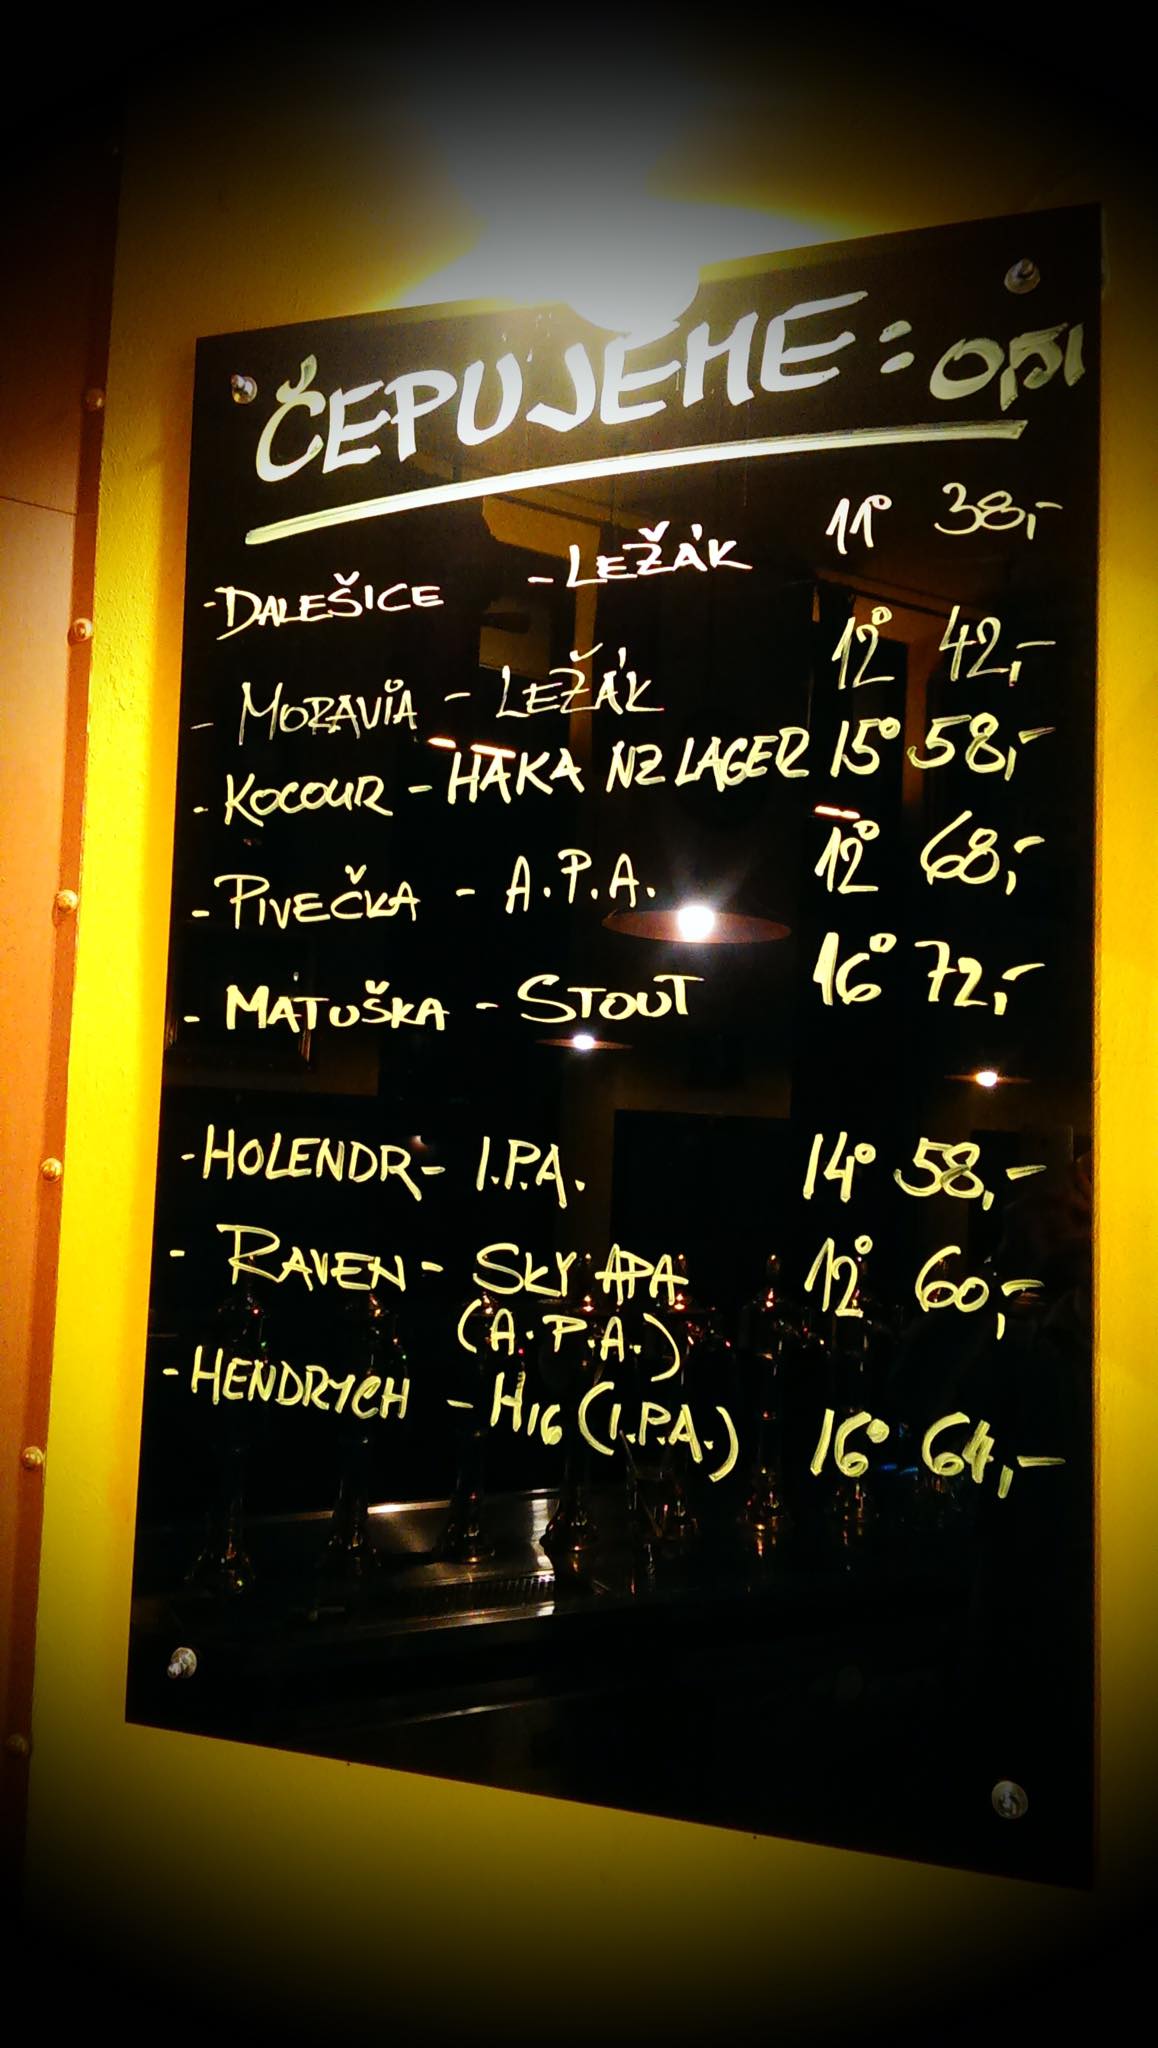 ČEPUJEME: 0,5l
-DALEŠICE - LEŽÁK 11° 38,-
- MORAVIA - LEŽÁK 12° 42,-
- KOCOUR - HAKA NZ LAGER 15° 58,-
- PIVEČKA - A.P.A. 12° 68,-
- MATUŠKA - STOUT 16° 72,-
-HOLENDR- I.P.A. 14° 58,-
- RAVEN - SKY APA 12° 60,-
(A.P.A.)
-HENDRYCH - H16 (I.P.A.) 16° 64,-